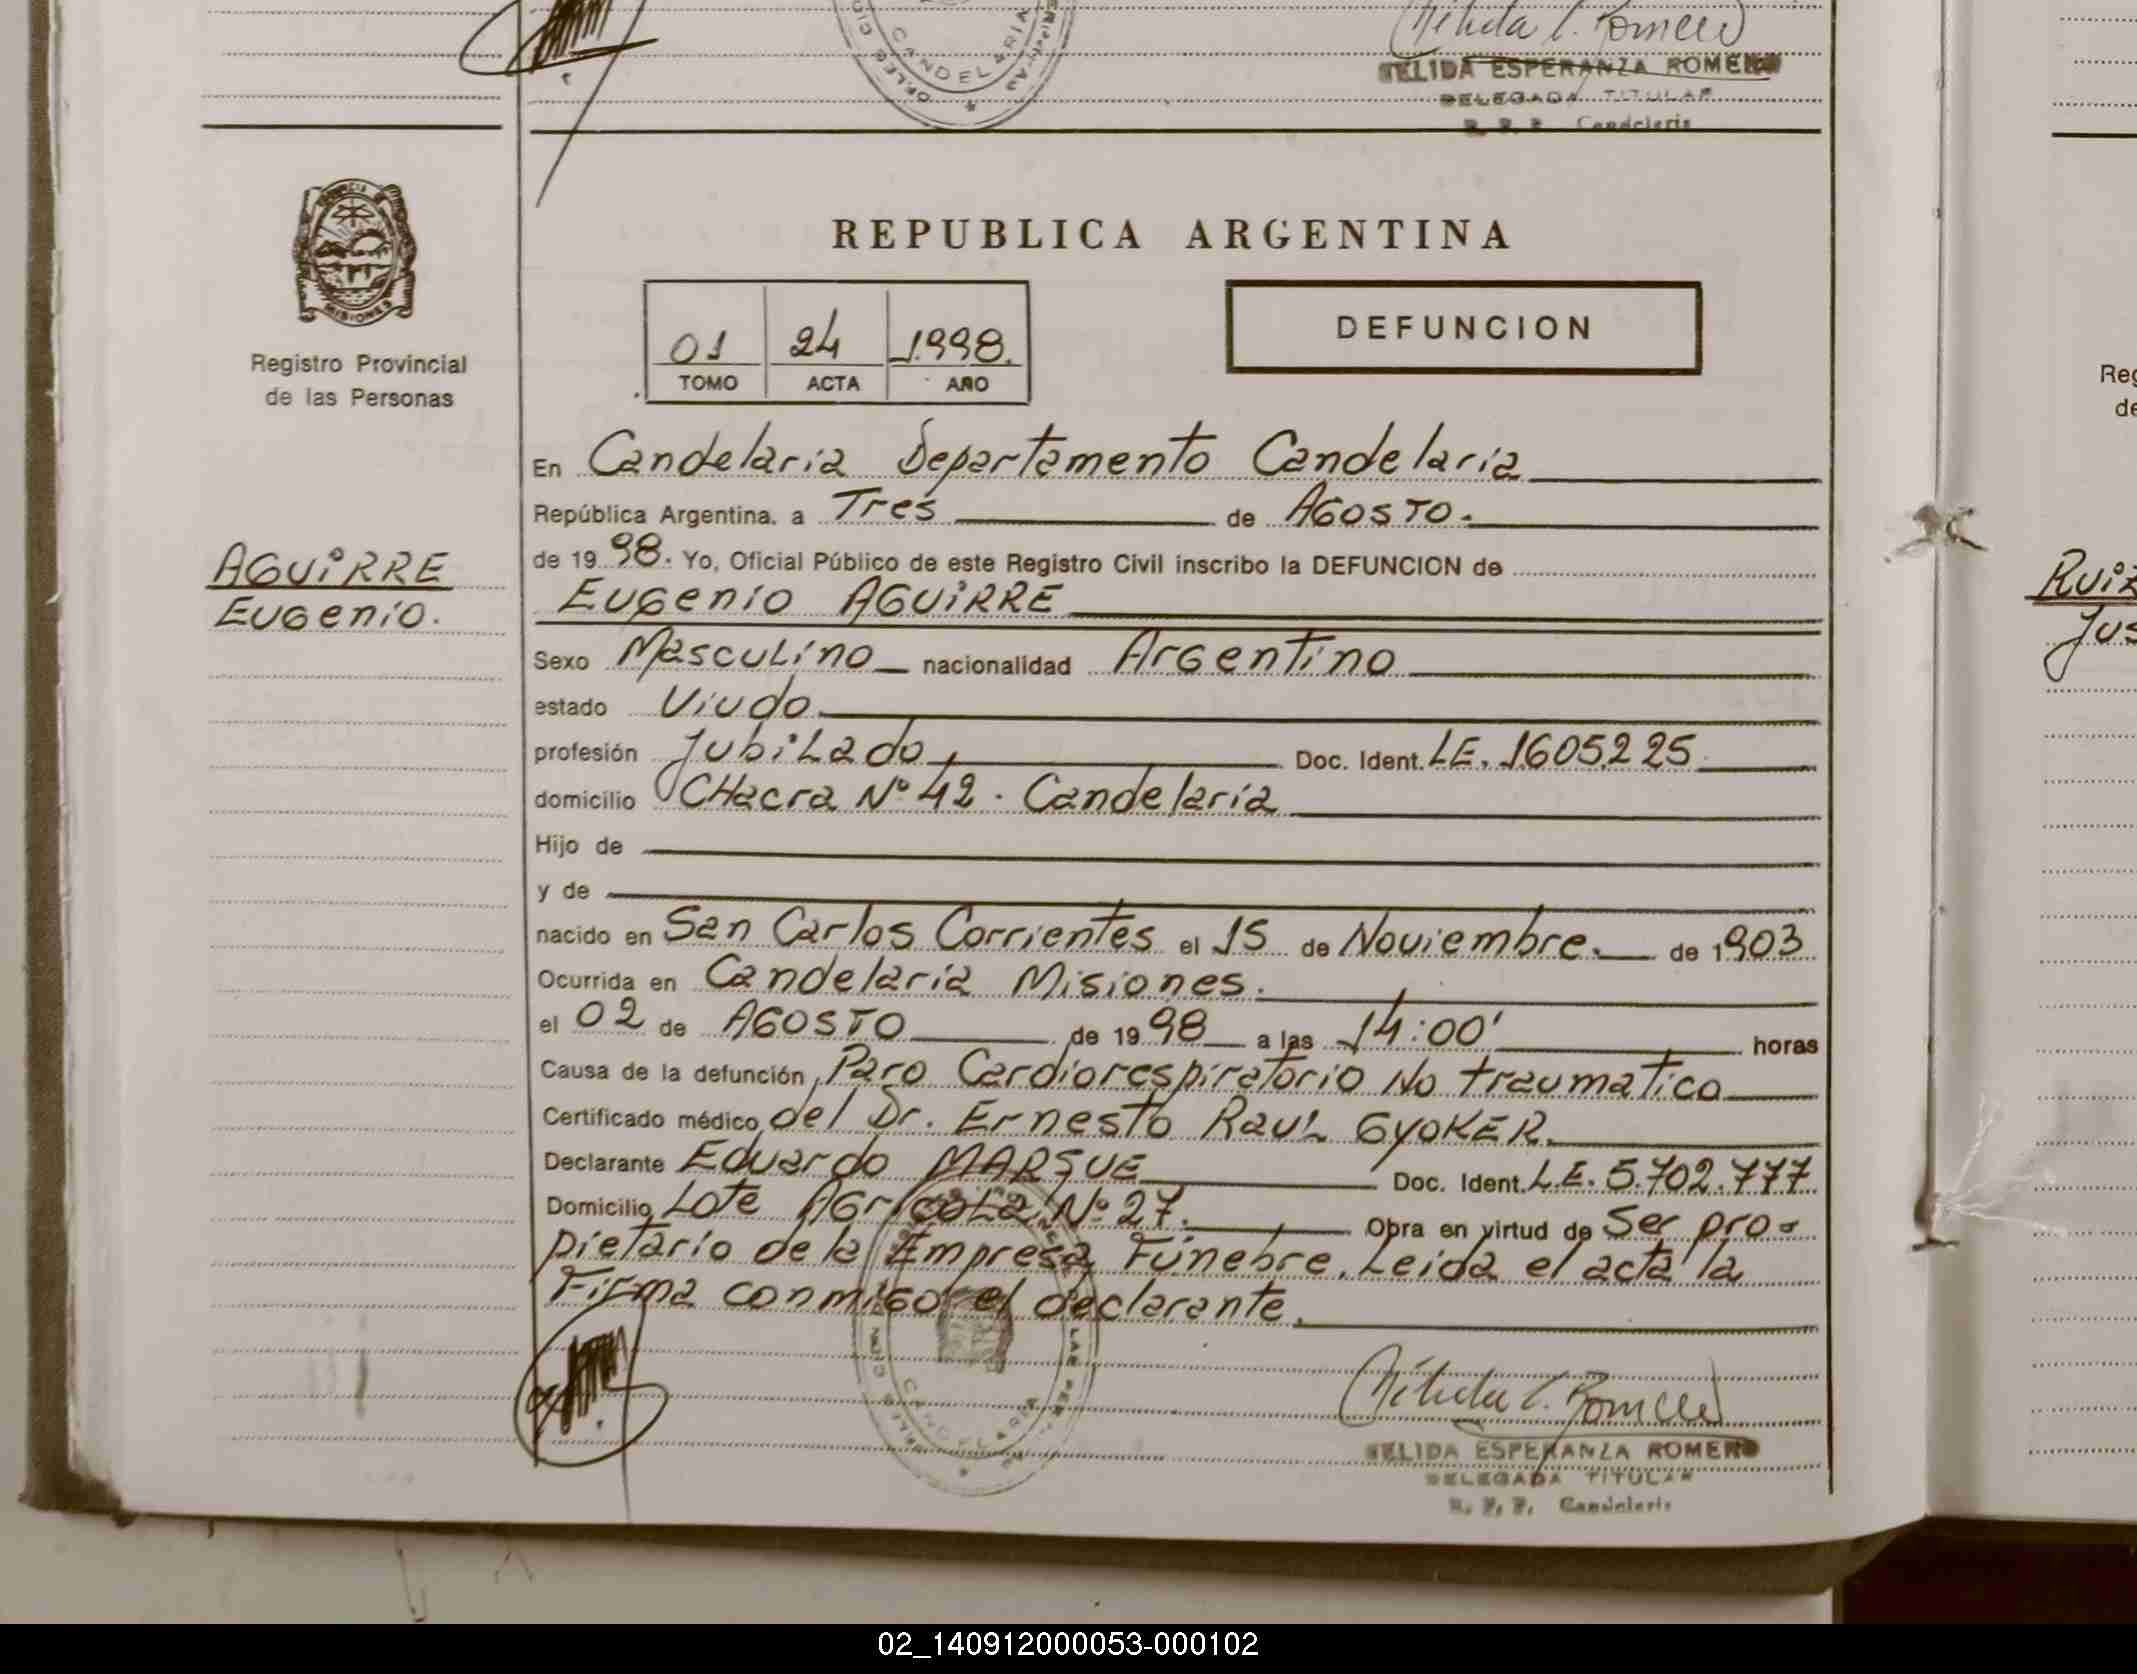 CANDELARIA
Nélida E. Romero
NELIDA ESPERANZA ROMERO
DELEGADA TITULAR
R. P. P. Candelaria
MISIONES
Registro Provincial
de las Personas
AGUIRRE
Eugenio.
REPUBLICA ARGENTINA
01 24 1998.
TOMO ACTA AÑO
DEFUNCION
En Candelaria Departamento Candelaria
República Argentina, a Tres de Agosto.
de 1998. Yo, Oficial Público de este Registro Civil inscribo la DEFUNCION de
Eugenio AGUIRRE
Sexo Masculino nacionalidad Argentino
estado Viudo
profesión Jubilado Doc. Ident. LE. 1605225
domicilio CHacra Nº 42. Candelaria
Hijo de
y de
nacido en San Carlos Corrientes el 15 de Noviembre. de 1903
Ocurrida en Candelaria Misiones.
el 02 de AGOSTO de 1998 a las 14:00' horas
Causa de la defunción Paro Cardiorespiratorio No traumatico
Certificado médico del Dr. Ernesto Raul GYOKER.
Declarante Eduardo MARQUE Doc. Ident. L.E. 5.702.777
Domicilio Lote Agricola Nº 27. Obra en virtud de Ser pro-
pietario de la Empresa Fúnebre. Leida el acta la
Firma conmigo el declarante.
CANDELARIA
Nélida E. Romero
NELIDA ESPERANZA ROMERO
DELEGADA TITULAR
R. P. P. Candelaria
Reg
de
Ruiz
Jus
02_140912000053-000102